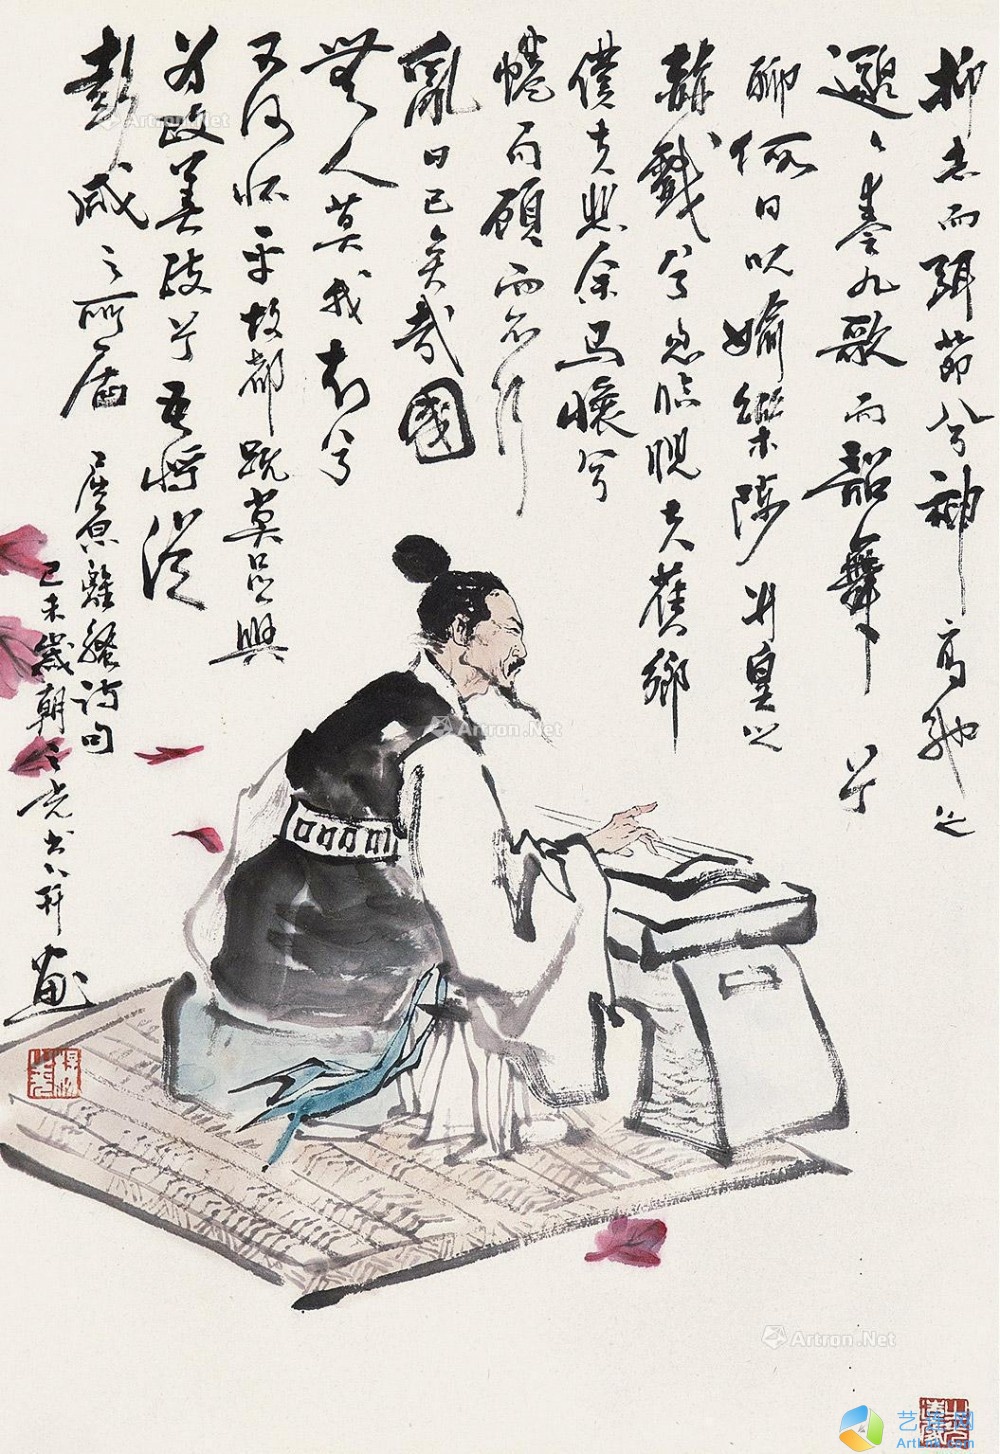 抑志而弭節兮神高馳之
邈々奏九歌而韶舞兮
聊假日以媮樂陟升皇之
赫戲兮忽臨睨夫舊鄉
僕夫悲余马懷兮
蜷局顧而不行
亂曰已矣哉國
無人莫我知兮
又何怀乎故都既莫足與
为政美政兮吾將從
彭咸之所居
屈原離騷詩句
己未歲朝之光書 畫
Artron.Net
Artron.Net
Artron.Net